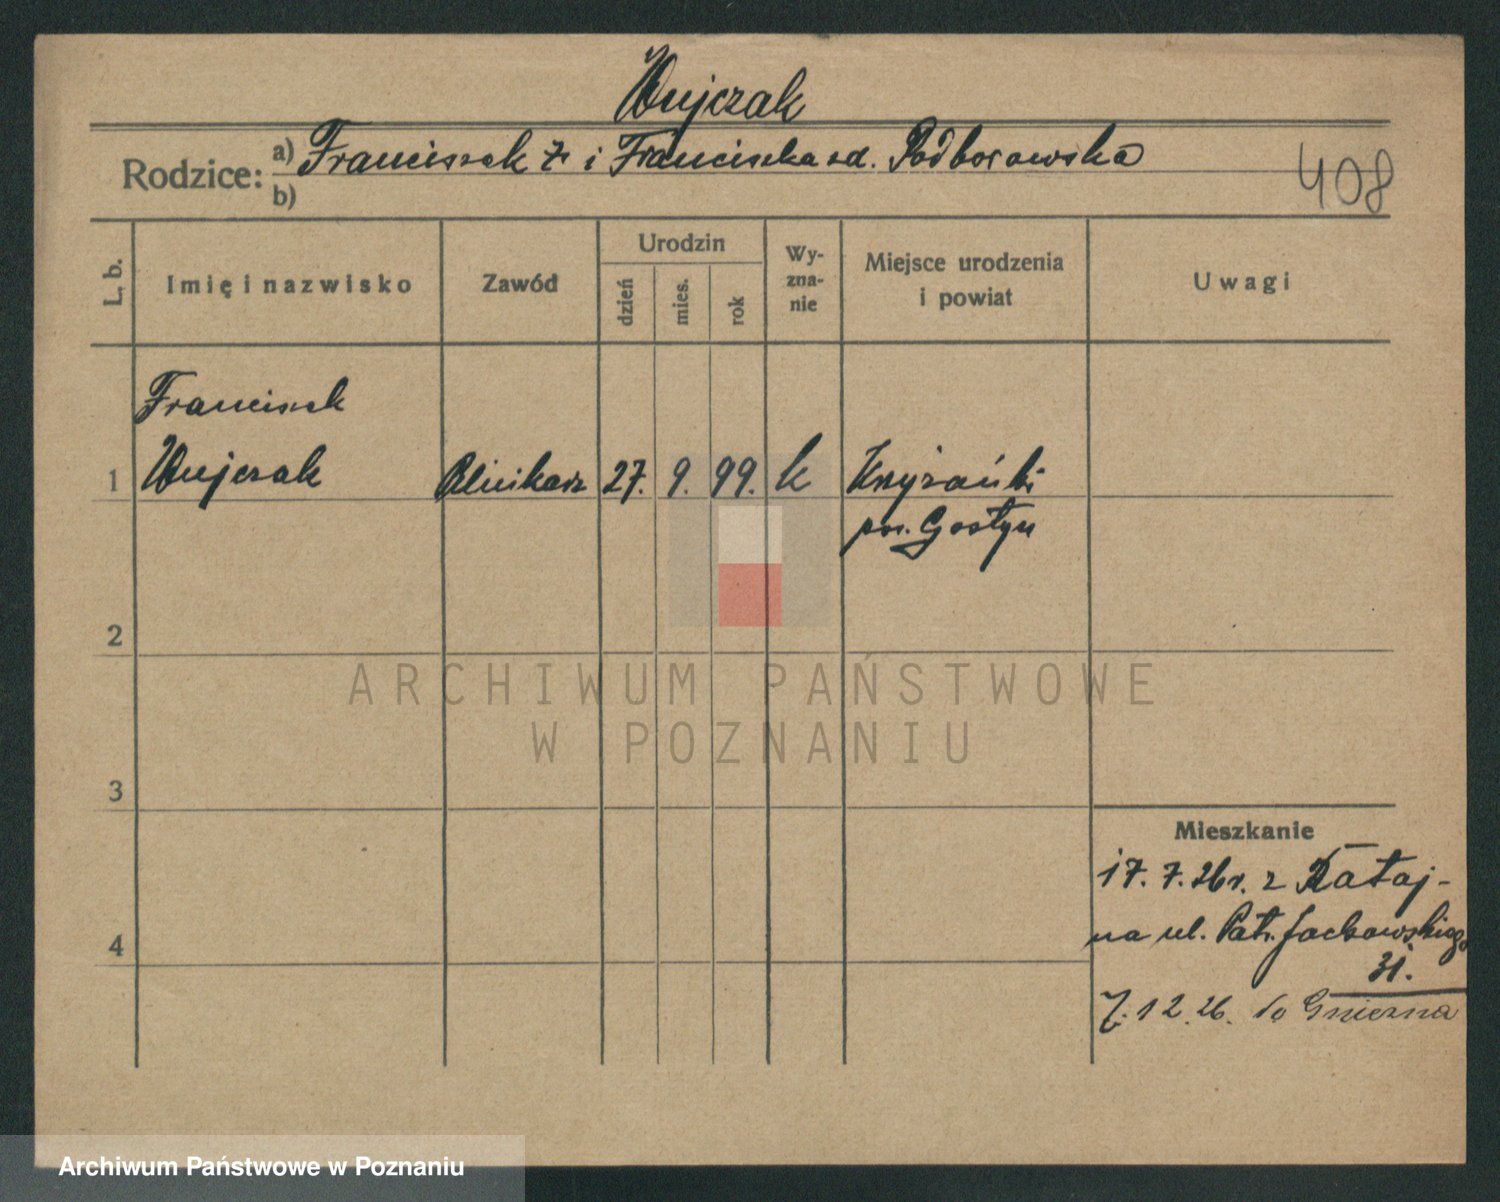 Wujczak
Rodzice: a) Franciszek † i Franciszka zd. Podborowska
b)
408
L. b.
Imię i nazwisko
Zawód
Urodzin
dzień
mies.
rok
Wy-
zna-
nie
Miejsce urodzenia
i powiat
Uwagi
Franciszek
1 Wujczak 27. 9. 99. k
pow. Gostyń
2
3
4
Mieszkanie
17. 7. 26 r. z Rataj-
na ul. Patr. Jackowskiego
31.
7. 12. 26. do Gniezna
ARCHIWUM PAŃSTWOWE
W POZNANIU
Archiwum Państwowe w Poznaniu